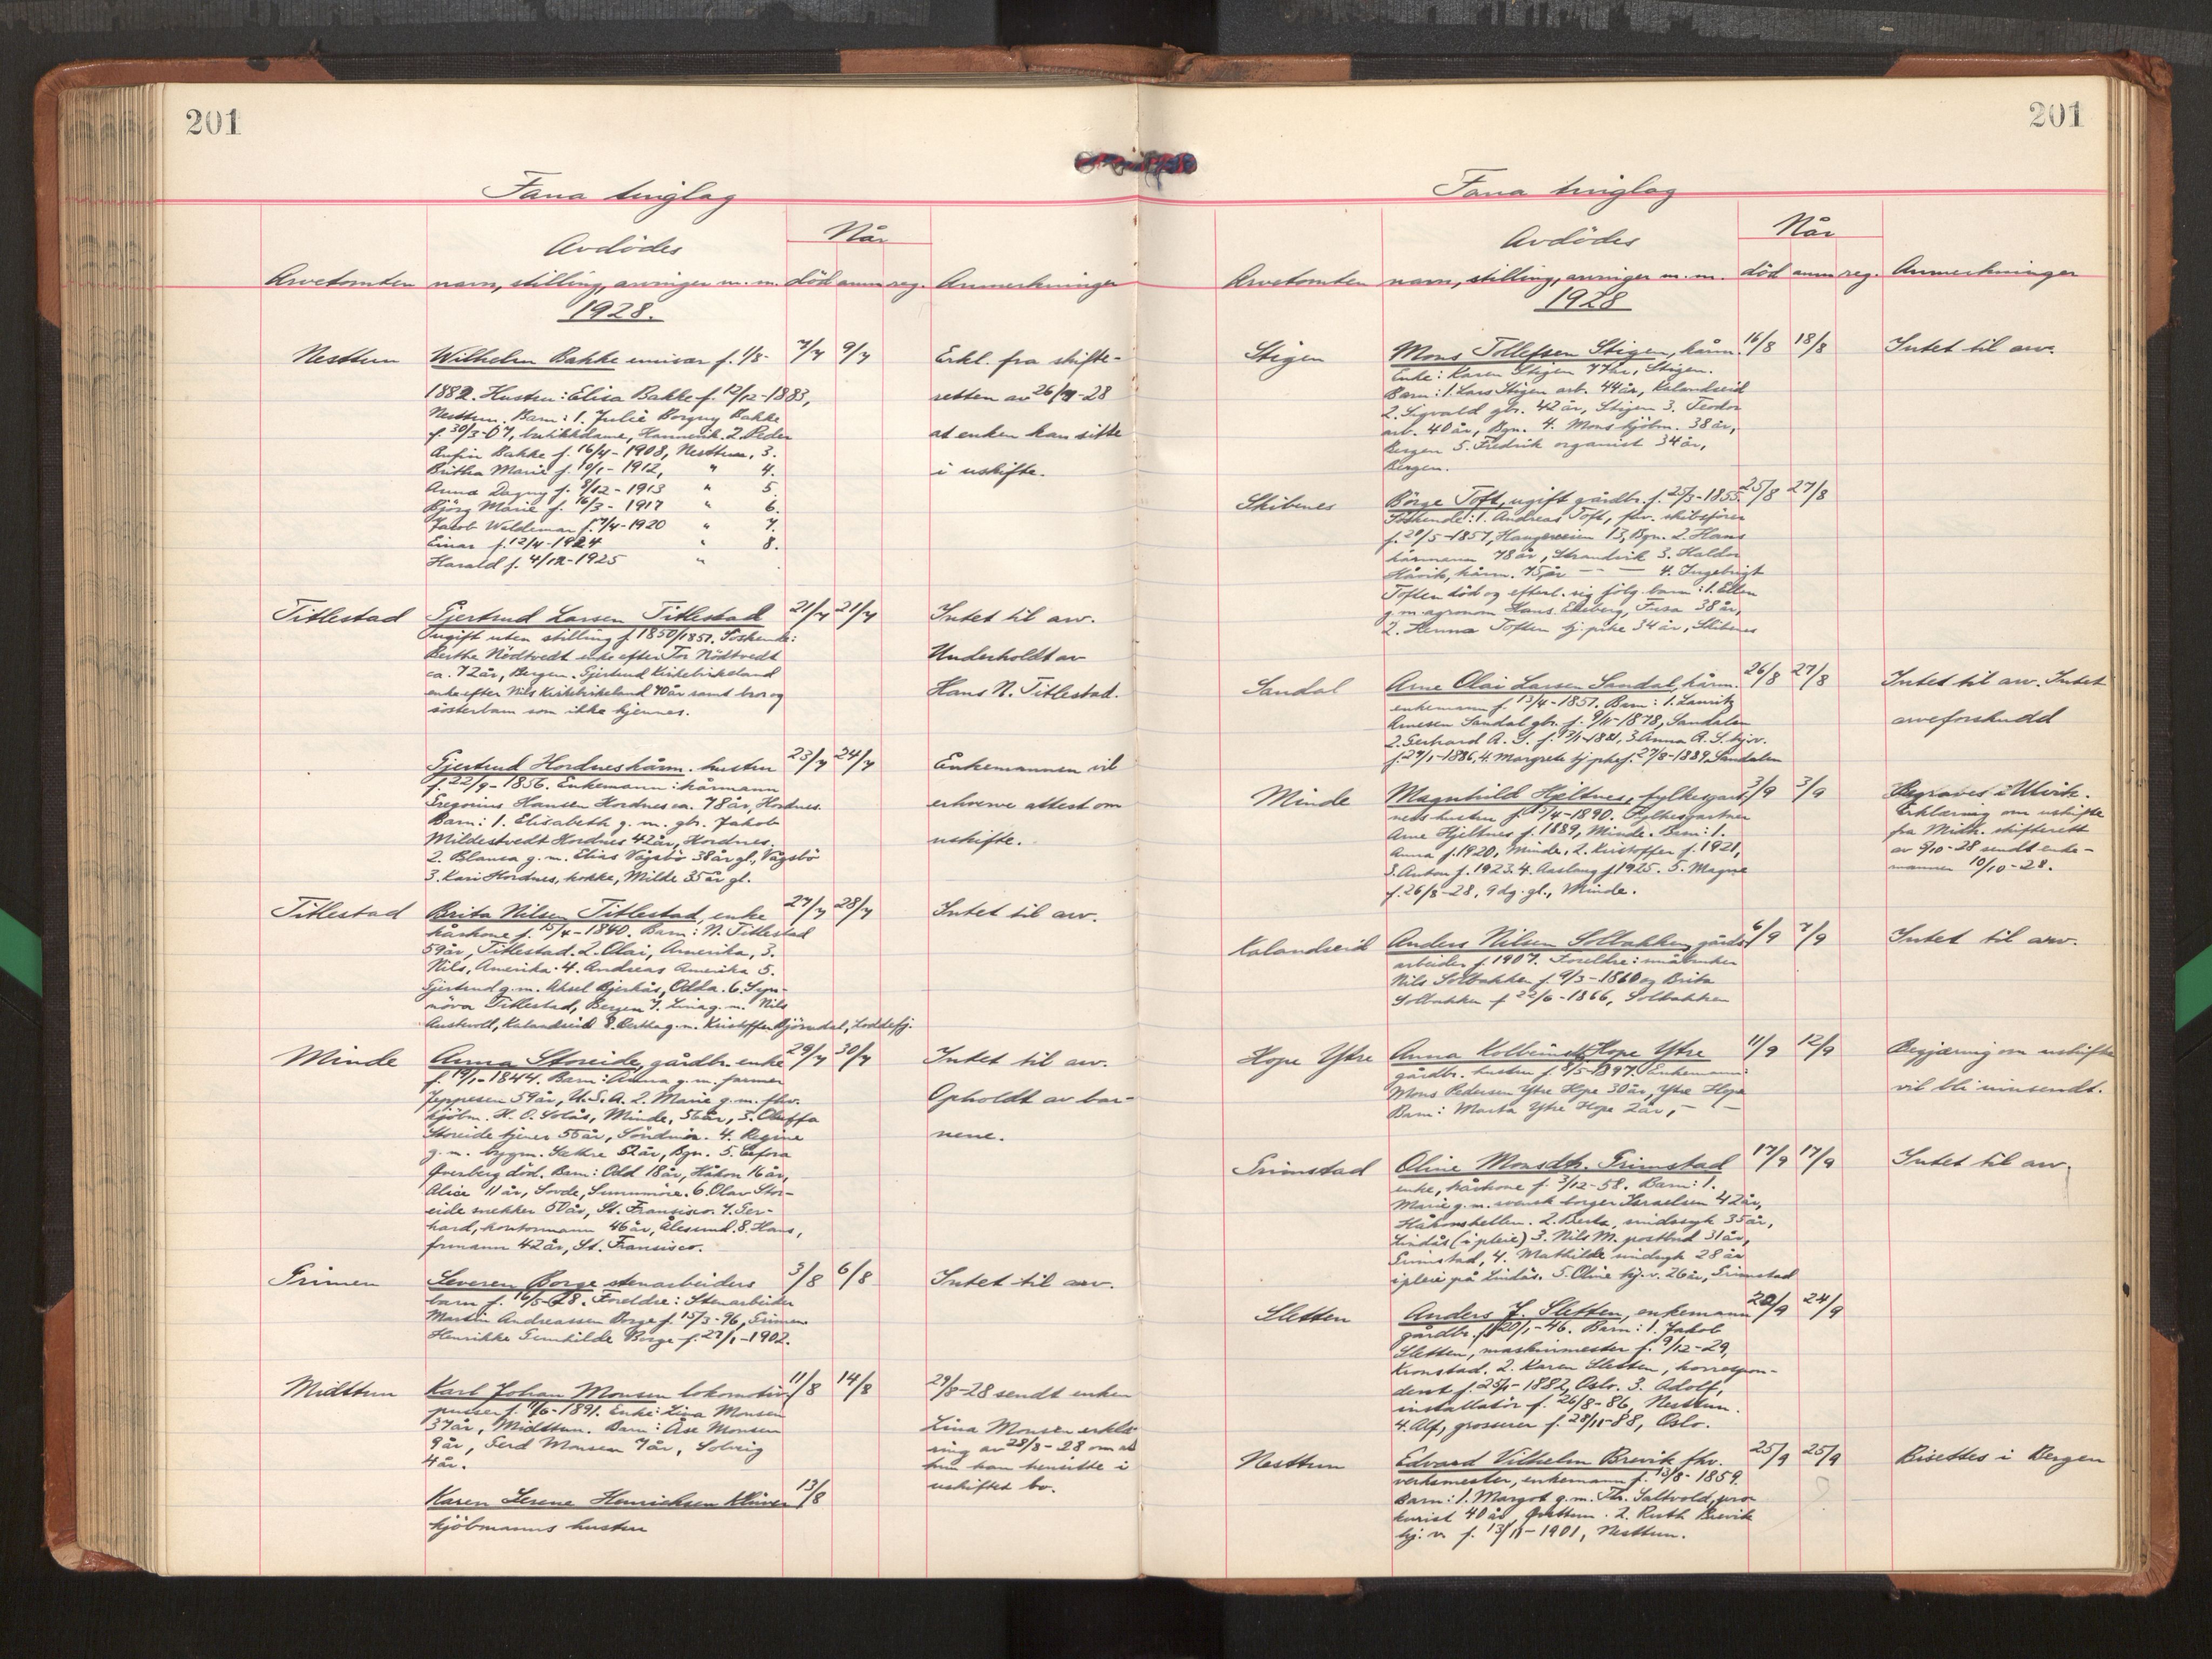 201
Fana tinglag
Avdödes
Når
Arvetomten navn, stilling, arvinger m. m. död anm reg. Anmerkninger
1928.
Nesttun Wilhelm Bakke emissær f. 1/8- 7/7 9/7 Erkl. fra skifte-
1882. Hustru: Elisa Bakke f. 12/12-1883, retten av 26/7-28
Nesttun. Barn: 1. Julie Borgny Bakke
f. 30/3-07, butikkdame, 2. Peder at enken kan sitte
Anfin Bakke f. 16/4-1908, Nesttun, 3.
Britha Marie f. 10/1-1912, " 4. i uskifte.
Anna Dagny f. 8/12-1913 " 5.
Björg Marie f. 16/3-1917 " 6.
Jacob Waldemar f. 7/4-1920 " 7.
Einar f. 12/4-1924 " 8.
Harald f. 4/12-1925 "
Titlestad Gjertrud Larsen Titlestad 21/7 21/7 Intet til arv.
Ungift uten stilling f. 1850/1851. Söskende:
Berthe Nödtvedt enke efter Tor Nödtvedt Underholdt av
ca. 72 år, Bergen. Gjertrud Kirkebirkeland
enke efter Nils Kirkebirkeland 70 år samt bror og Hans N. Titlestad.
sösterbarn som ikke kjennes.
Gjertrud Hordnes kårm. hustru 23/7 24/7 Enkemannen vil
f. 22/9-1856. Enkemann: kårmann
Gregorius Hansen Hordnes ca. 78 år, Hordnes. erhverve attest om
Barn: 1. Elisabeth g. m. gbr. Jakob
Mildestvedt Hordnes 42 år, Hordnes. uskifte.
2. Blanca g. m. Elias Vågsbö 38 år gl., Vågsbö
3. Kari Hordnes, kokke, Milde 35 år gl.
Titlestad Brita Nilsen Titlestad, enke 27/7 28/7 Intet til arv.
kårkone f. 15/4-1840. Barn: N. Titlestad
59 år, Titlestad. 2. Olai, Amerika, 3.
Nils, Amerika. 4. Andreas Amerika 5.
Gjertrud g. m. Aksel Bjerkås, Odda. 6. Syn-
növa Titlestad, Bergen 7. Lina g. m. Nils
Austvoll, Kalandseid 8. Bertha g. m. Kristoffer Björndal, Loddefj.
Minde Anna Storeide, gårdbr. enke 29/7 30/7 Intet til arv.
f. 19/1-1844. Barn: Anna g. m. farmer
Jeppesen 59 år, U.S.A. 2. Marie g. m. fhv. Opholdt av bar-
kjöbm. H. O. Solås, Minde, 56 år, 3. Oluffa
Storeide tjener 55 år, Söndmör. 4. Regine nene.
g. m. bygm. Sættre 52 år, Bgn. 5. Eefora
Qverberg död. Barn: Odd 18 år, Håkon 16 år,
Alice 11 år, Sovde, Sunnmöre. 6. Olav Stor-
eide snekker 50 år, St. Fransisco. 7. Ger-
hard, kontormann 46 år, Ålesund. 8. Hans,
formann 42 år, St. Fransisco.
Grimen Severen Borge stenarbeiders 3/8 6/8 Intet til arv.
barn f. 16/5-28. Foreldre: Stenarbeider
Martin Andreassen Borge f. 15/3-96, Grimen
Henrikke Gunhilde Borge f. 27/1-1902.
Midttun Karl Johan Monsen lokomotiv 11/8 14/8 29/8-28 sendt enken
pusser f. 11/6-1891. Enke: Lina Monsen
37 år, Midttun. Barn: Åse Monsen Lina Monsen erklæ-
9 år, Gerd Monsen 7 år, Solveig ring av 28/8-28 om at
4 år. hun kan hensitte i
uskiftet bo.
Karen Serene Henriksen Klüver 13/8
kjöbmanns hustru
201
Fana tinglag
Avdödes
Når
Arvetomten navn, stilling, arvinger m. m. död anm reg. Anmerkninger
1928
Stigen Mons Tollefsen Stigen, kårm. 16/8 18/8 Intet til arv.
Enke: Karen Stigen 77 år, Stigen.
Barn: 1. Lars Stigen arb. 44 år, Kalandseid
2. Sigvald gbr. 42 år, Stigen 3. Teodor
arb. 40 år, Bgn. 4. Mons kjöbm. 38 år,
Bergen 5. Fredrik organist 34 år,
Bergen.
Skibenes Börge Toft, ugift gårdbr. f. 25/3-1855. 25/8 27/8
Söskende: 1. Andreas Toft, fhv. skibsförer
f. 20/5-1857, Haugeveien 13, Bgn. 2. Hans
kårmann 78 år, Strandvik 3. Haldor
Håvik, kårm. 75 år — — 4. Ingebrigt
Toften död og efterl. sig fölg. barn: 1. Ellen
g. m. agronom Hans Ekeberg, Fusa 38 år,
2. Henna Toften tj. pike 34 år, Skibenes
Sandal Arne Olai Larsen Sandal, kårm. 26/8 27/8 Intet til arv. Intet
enkemann f. 13/4-1851. Barn: 1. Lauritz
Arnesen Sandal gbr. f. 9/11-1878, Sandalen arveforskudd
2. Gerhard A. S. f. 12/1-1881, 3. Anna A. S. hj.v.
f. 27/1-1886, 4. Margrete tj. pike f. 27/8-1889, Sandalen
Minde Magnhild Hjeltnes, fylkesgart- 3/9 3/9 Begraves i Ulvik.
ners hustru f. 15/4-1890. Fylkesgartner Erklæring om uskifte
Arne Hjeltnes f. 1889, Minde. Barn: 1. fra Midh. skifterett
Anna f. 1920, Minde, 2. Kristoffer f. 1921, av 9/10-28 sendt enke-
3. Anton f. 1923. 4. Aaslaug f 1925. 5. Magne mannen 10/10-28.
f. 26/8-28, 9 dg. gl., Minde.
Kalandseid Anders Nilsen Solbakken, gårds- 6/9 7/9 Intet til arv.
arbeider f. 1907. Foreldre: småbruker
Nils Solbakken f. 9/3-1860 og Brita
Solbakken f. 22/6-1866, Solbakken
Hope Ytre Anna Kolbeinsdt. Hope Ytre 11/9 12/9 Begjæring om uskifte
gårdbr. hustru f. 8/5-1897. Enkemann:
Mons Pedersen Ytre Hope 30 år, Ytre Hope vil bli innsendt.
Barn: Marta Ytre Hope 2 år, — —
Grimstad Oline Monsdtr. Grimstad 17/9 17/9 Intet til arv.
enke, kårkone f. 3/12-58. Barn: 1.
Marie g. m. svensk borger Israelsen 42 år,
Håkonshellen. 2. Berta, sindssyk 35 år,
Lindås (i pleie) 3. Nils M. postbud 31 år,
Grimstad, 4. Mathilde sindsyk 28 år
i pleie på Lindås. 5. Oline hj. v. 26 år, Grimstad
Sletten Anders J. Sletten, enkemann 22/9 24/9
gårdbr. f. 20/1-46. Barn: 1. Jakob
Sletten, maskinmester f. 9/12-29,
Kronstad. 2. Karen Sletten, korrespon-
dent f. 25/1-1882, Oslo. 3. Adolf,
installatör f. 26/8-86, Nesttun.
4. Alf, grosserer f. 28/11-88, Oslo.
Nesttun Edvard Vilhelm Brevik fhv. 25/9 25/9 Bisettes i Bergen
verksmester, enkemann f. 13/8-1859.
Barn: 1. Margot g. m. Th. Saltvold, pro-
kurist 40 år, Nesttun. 2. Ruth Brevik
hj. v. f. 13/11-1901, Nesttun.